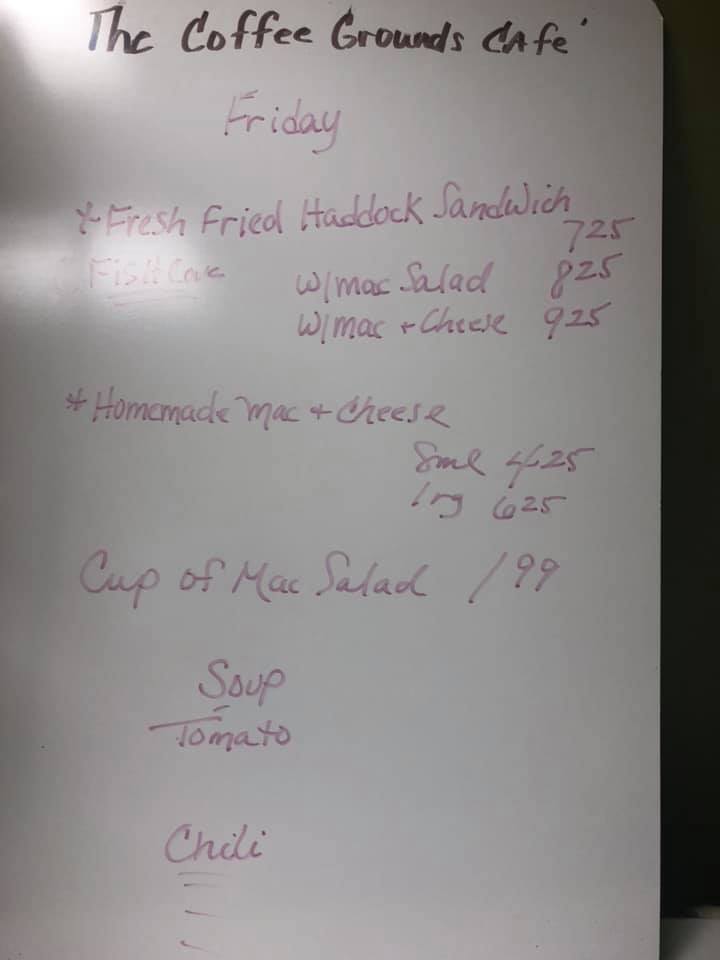 The Coffee Grounds CAfe'
Friday
* Fresh Fried Haddock Sandwich
725
w/mac Salad 825
w/mac + Cheese 925
* Homemade Mac + Cheese
Sml 425
lrg 625
Cup of Mac Salad 199
Soup
Tomato
Chili